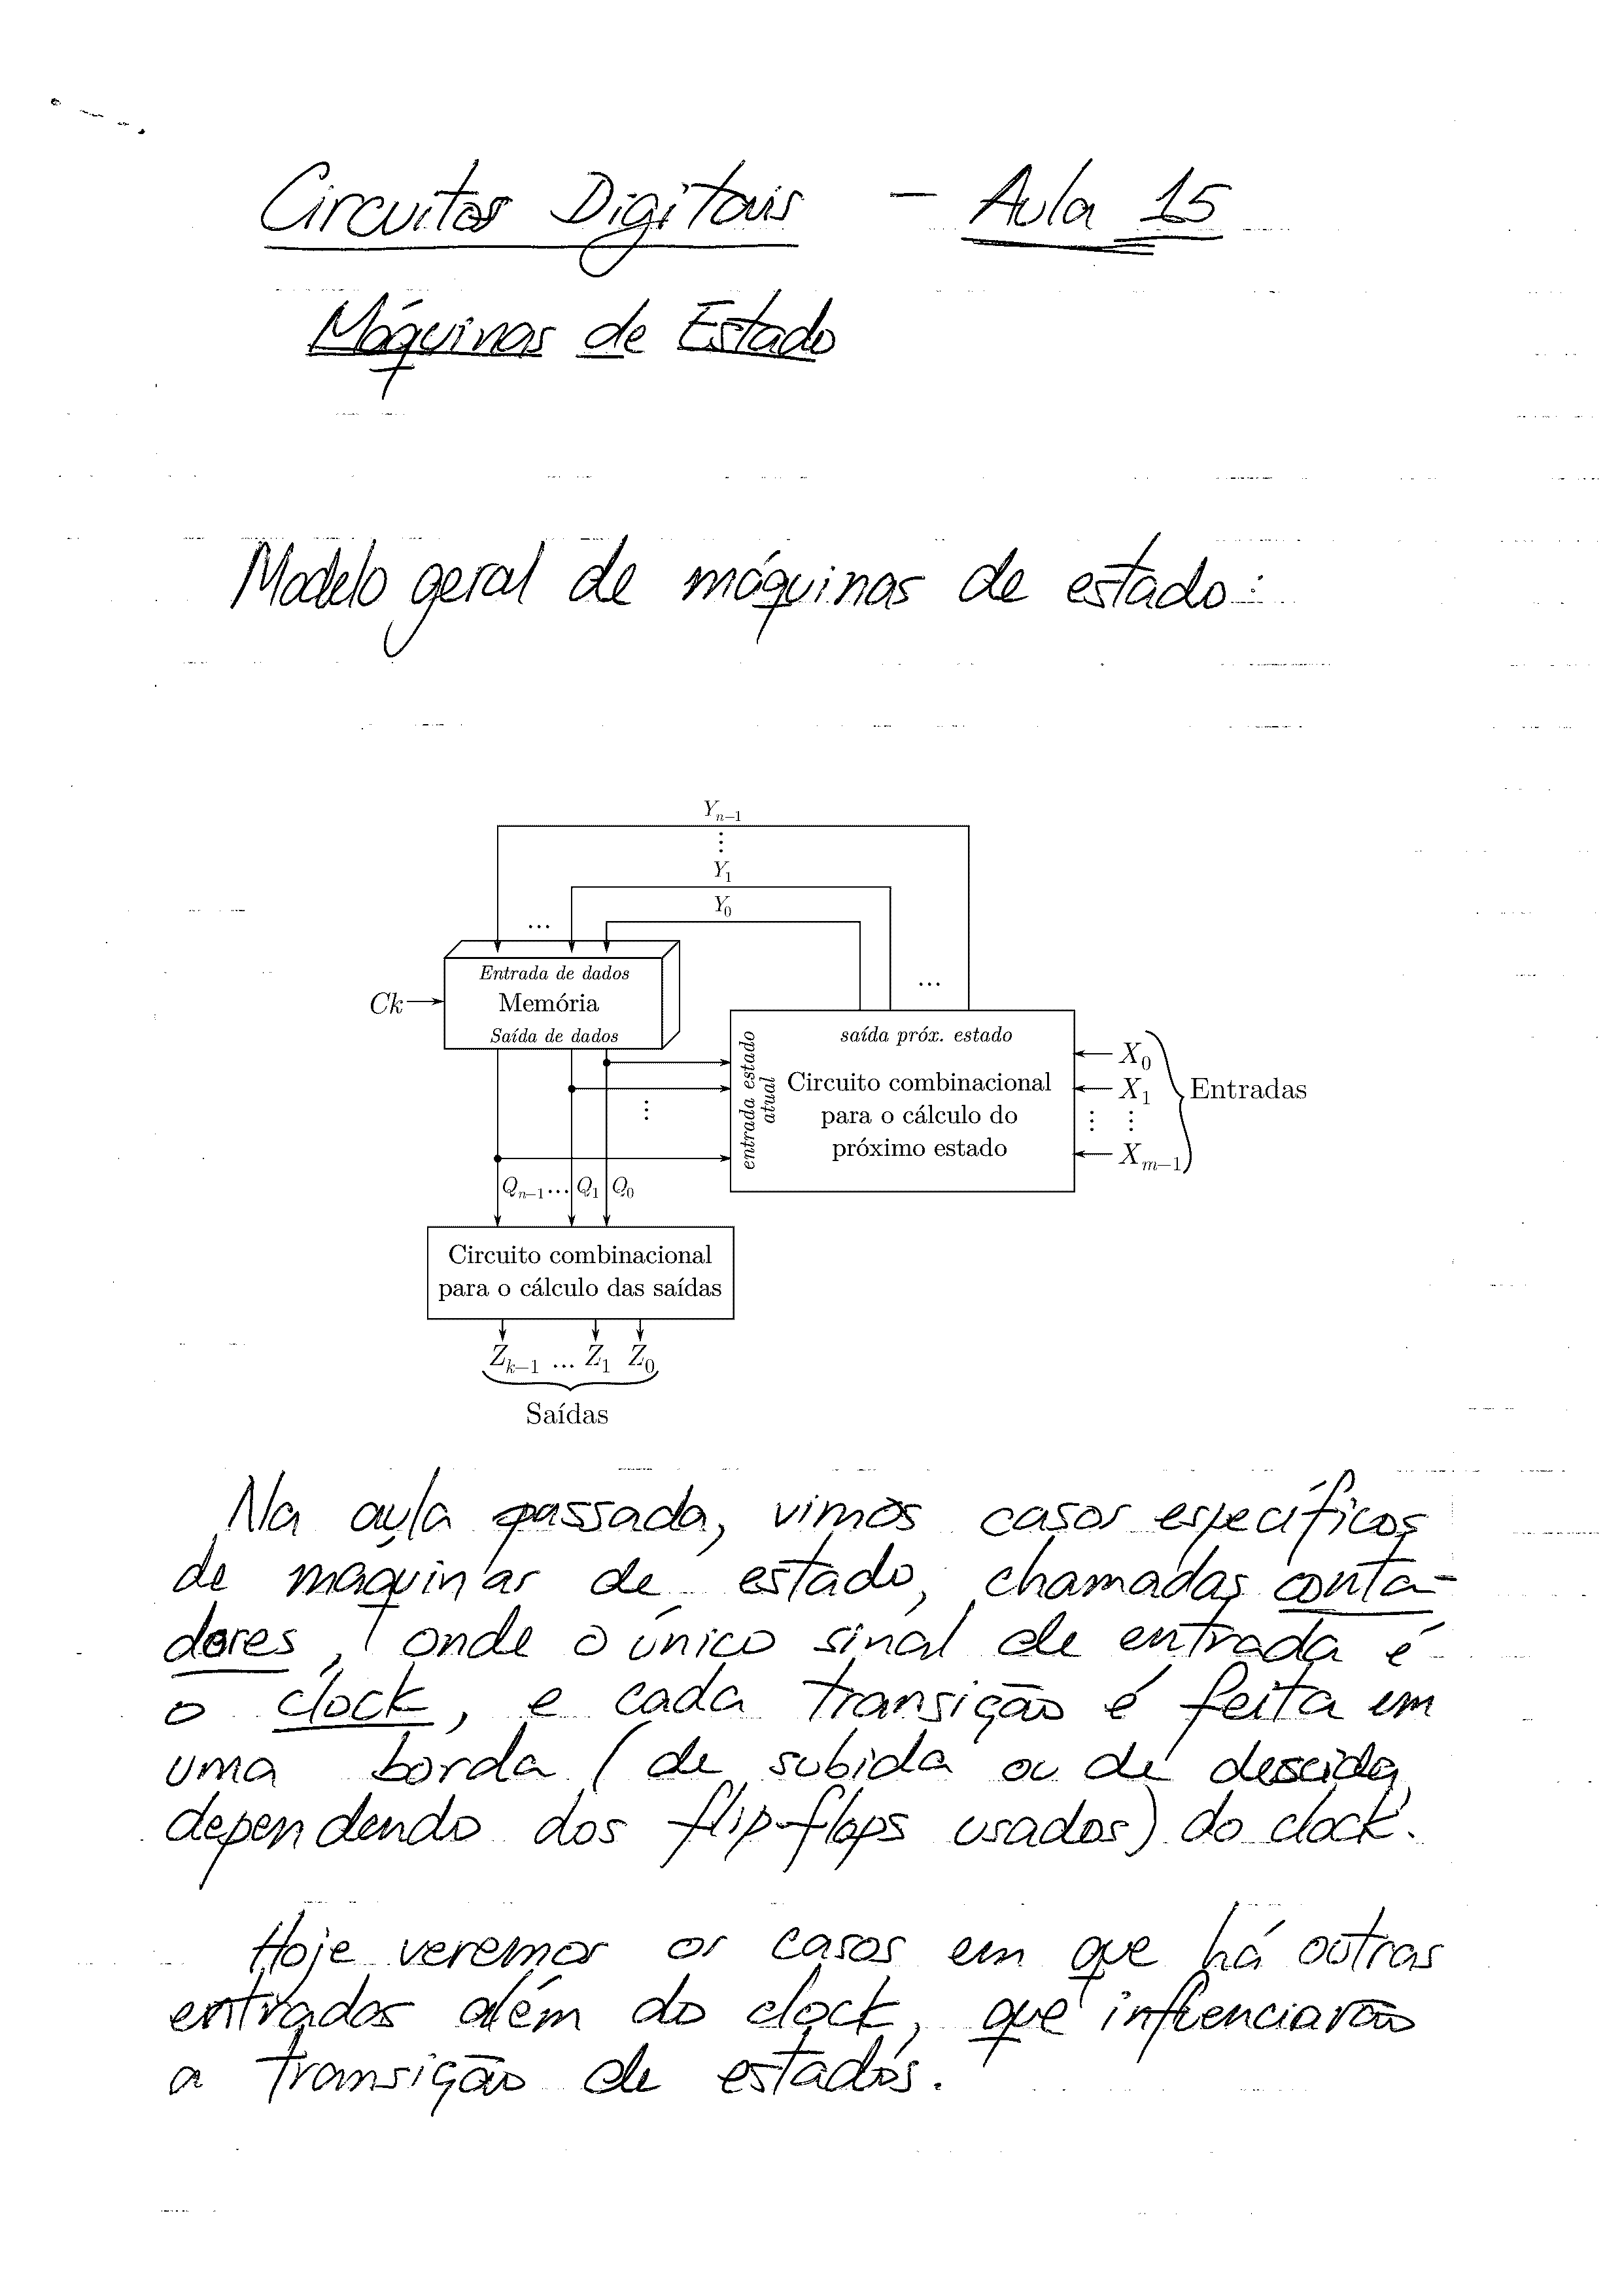 Circuitos Digitais - Aula 15
Máquinas de Estado
Modelo geral de máquinas de estado:
Yn-1
⋮
Y1
Y0
...
Entrada de dados
Ck
Memória
Saída de dados
...
entrada estado
atual
saída próx. estado
Circuito combinacional
para o cálculo do
próximo estado
X0
X1
⋮ ⋮
Xm-1
Entradas
⋮
Qn-1 ... Q1 Q0
Circuito combinacional
para o cálculo das saídas
Zk-1 ... Z1 Z0
Saídas
Na aula passada, vimos casos específicos
de maquinas de estado, chamadas conta-
dores, onde o único sinal de entrada é
o clock, e cada transição é feita em
uma borda (de subida ou de descida,
dependendo dos flip-flops usados) do clock.
Hoje veremos os casos em que há outras
entradas além do clock, que influenciarão
a transição de estados.